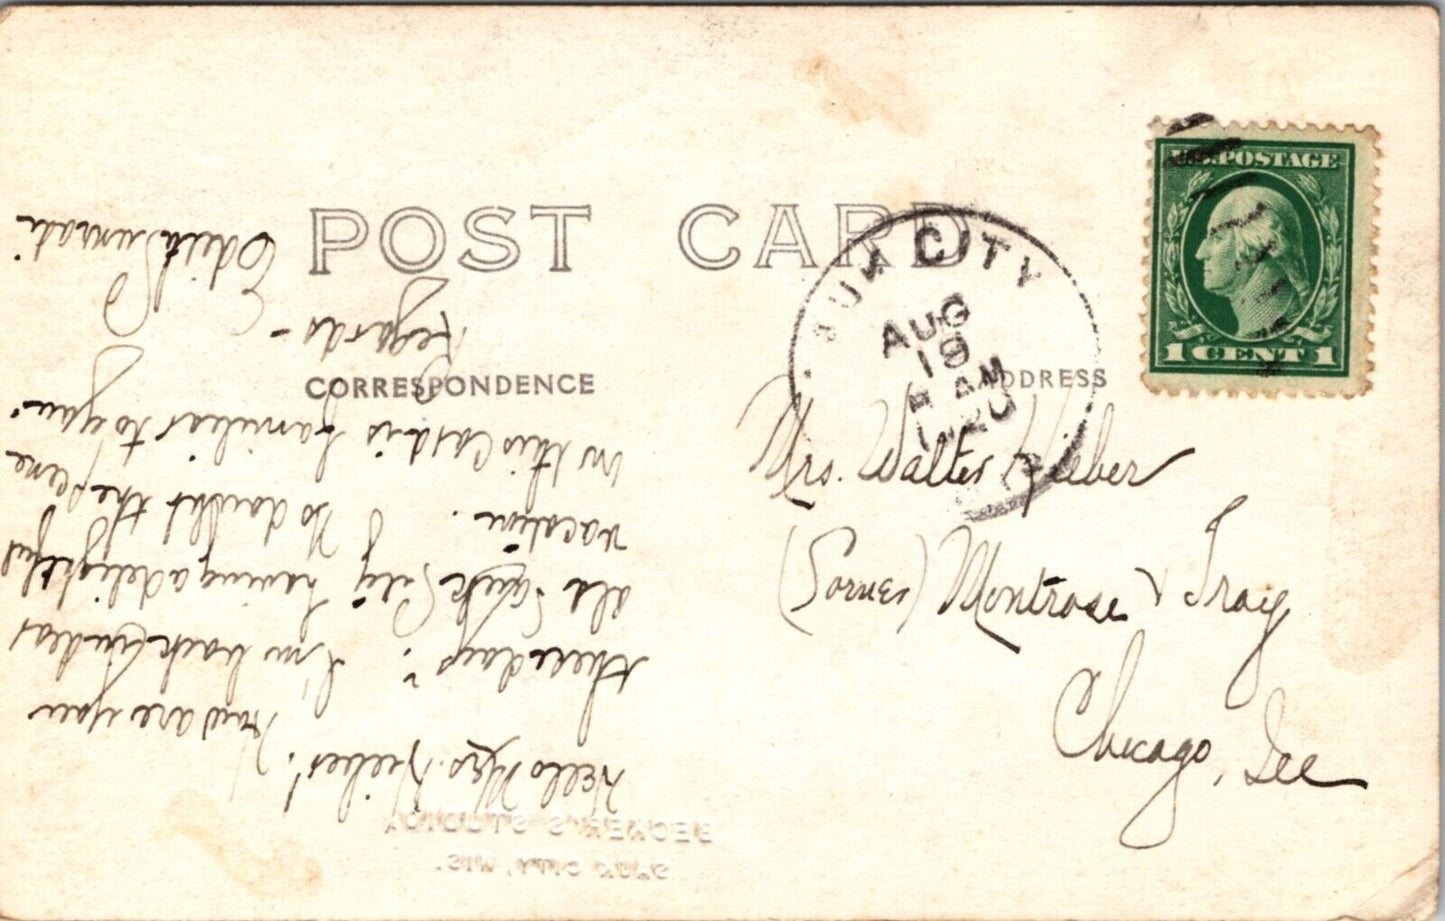 POST CARD
CORRESPONDENCE
ADDRESS
U.S. POSTAGE
1 CENT 1
SAUK CITY
AUG
19
AM
1920
WIS.
Mrs. Walter Kieber
(Corner) Montrose & Troy
Chicago, Ill
Hello Mrs. Kieber! How are you
these days? I'm back under
old Sauk City having a delightful
vacation. No doubt the scene
on this card is familiar to you.
Regards -
Edith
BECKER'S STUDIO,
SAUK CITY, WIS.